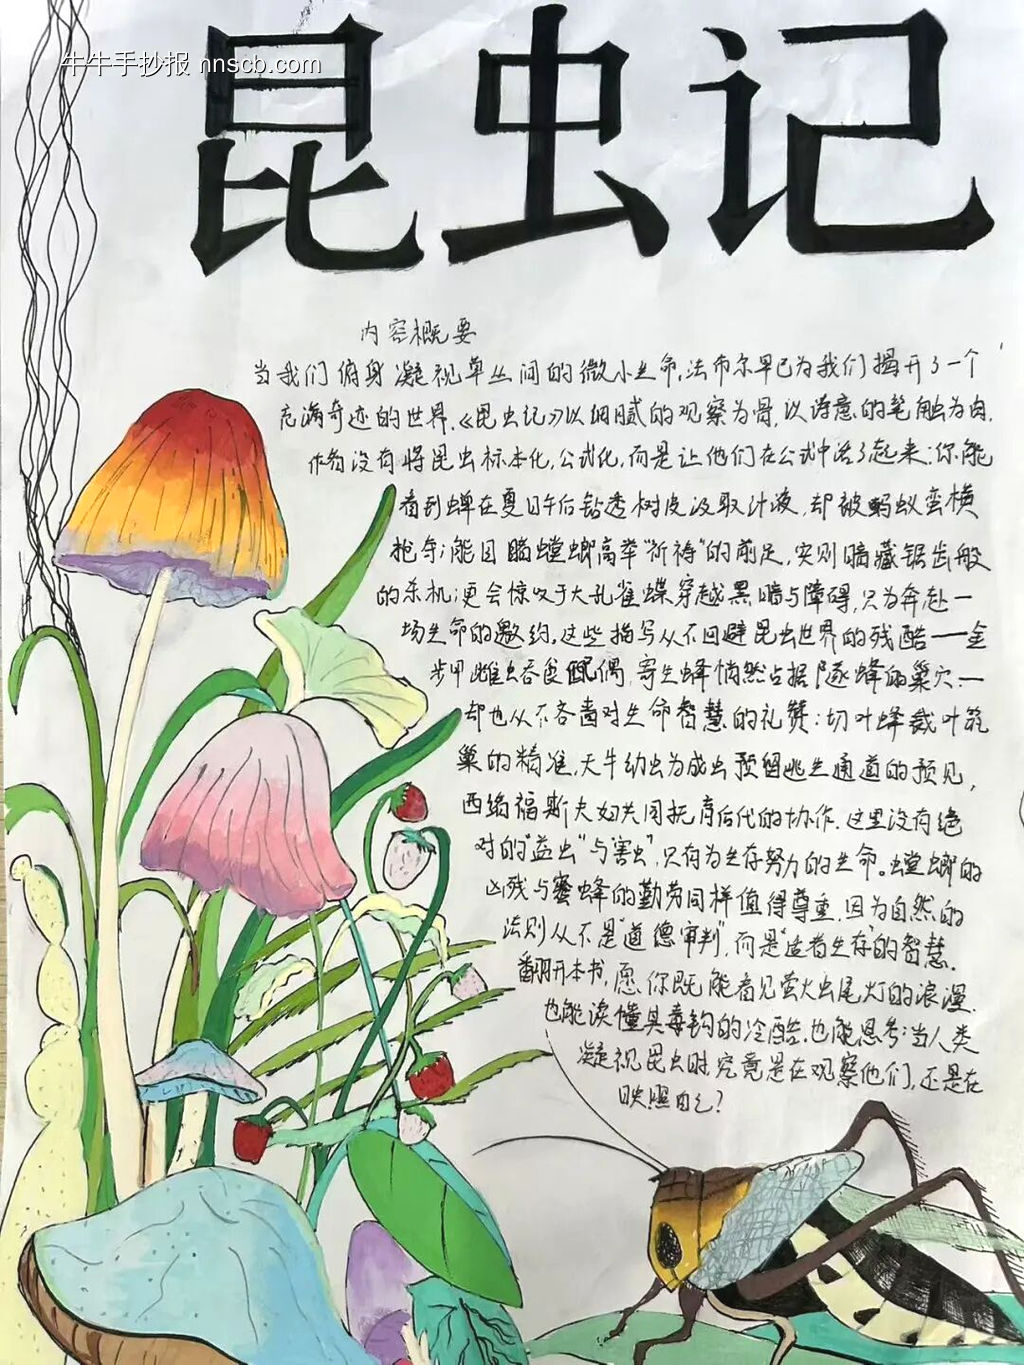 昆虫记
牛牛手抄报 nnscb.com
内容概要
当我们俯身凝视草丛间的微小生命,法布尔早已为我们揭开了一个
充满奇迹的世界.《昆虫记》以细腻的观察为骨,以诗意的笔触为肉.
作者没有将昆虫标本化,公式化,而是让他们在公式中活了起来:你能
看到蝉在夏日午后钻透树皮汲取汁液,却被蚂蚁蛮横
抢夺;能目睹螳螂高举“祈祷”的前足,实则暗藏锯齿般
的杀机;更会惊叹于大孔雀蝶穿越黑暗与障碍,只为奔赴一
场生命的邀约.这些描写从不回避昆虫世界的残酷——金
步甲雌虫吞食配偶,寄生蜂悄然占据隧蜂的巢穴.—
却也从不吝啬对生命智慧的礼赞:切叶蜂裁叶筑
巢的精准,天牛幼虫为成虫预留逃生通道的预见,
西绪福斯夫妇共同抚育后代的协作.这里没有绝
对的“益虫”与“害虫”,只有为生存努力的生命。螳螂的
凶残与蜜蜂的勤劳同样值得尊重,因为自然的
法则从不是“道德审判”,而是“适者生存”的智慧.
翻开本书,愿你既能看见萤火虫尾灯的浪漫,
也能读懂其毒钩的冷酷.也能思考:当人类
凝视昆虫时,究竟是在观察他们,还是在
映照自己?